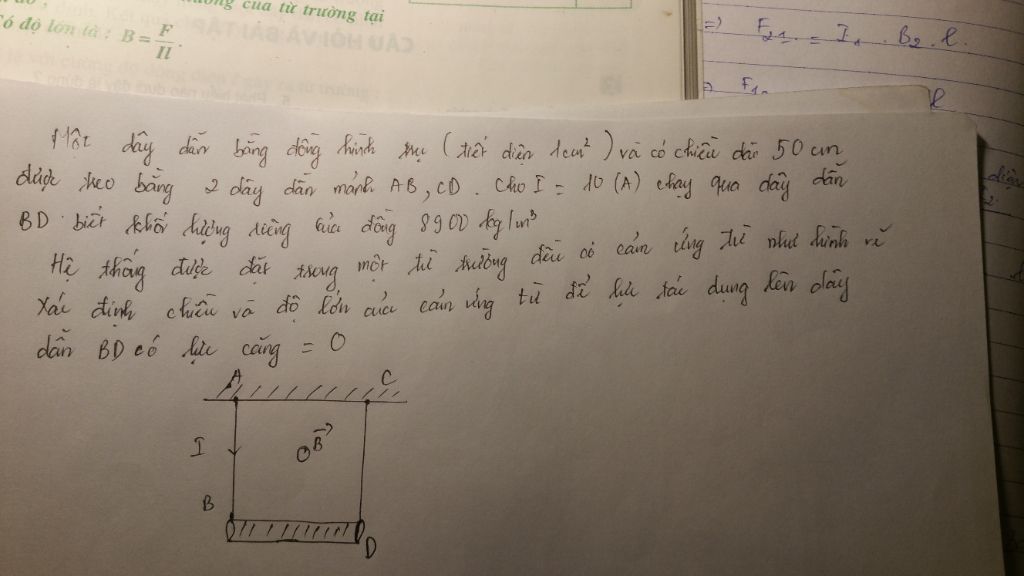 hướng của từ trường tại
có độ lớn là : B = F/Il .
CÂU HỎI VÀ BÀI TẬP
=> F₂₁ = I₁ . B₂ . l .
Một dây dẫn bằng đồng hình trụ ( tiết diện 1cm² ) và có chiều dài 50 cm
được treo bằng 2 dây dẫn mảnh AB, CD . Cho I = 10 (A) chạy qua dây dẫn
BD . biết khối lượng riêng của đồng 8900 kg/m³
Hệ thống được đặt trong một từ trường đều có cảm ứng từ như hình vẽ
Xác định chiều và độ lớn của cảm ứng từ để lực tác dụng lên dây
dẫn BD có lực căng = 0
A C
I B⃗
B
D